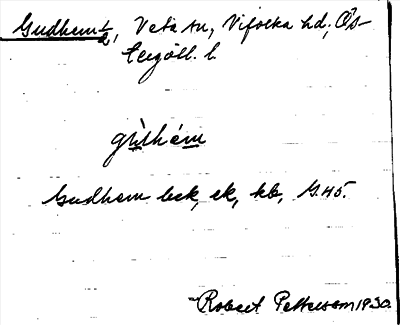 Gudhem 1/2, Veta sn, Vifolka hd, Ös-
tergötl. l.
gùthém
Gudhem bek, ek, kb, G.45.
Robert Pettersson 1930.